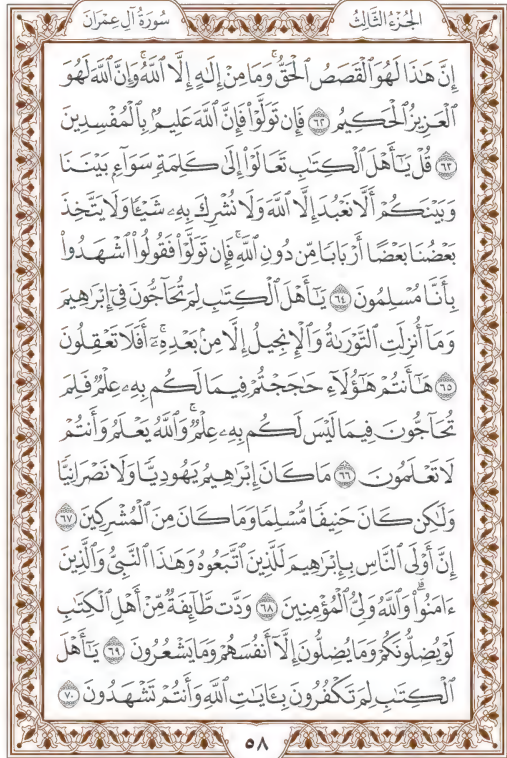 الجُزْءُ الثَّالِثُ سُورَةُ آلِ عِمْرَانَ
إِنَّ هَٰذَا لَهُوَ ٱلْقَصَصُ ٱلْحَقُّۚ وَمَا مِنْ إِلَٰهٍ إِلَّا ٱللَّهُۚ وَإِنَّ ٱللَّهَ لَهُوَ
ٱلْعَزِيزُ ٱلْحَكِيمُ ۝٦٢ فَإِن تَوَلَّوْا۟ فَإِنَّ ٱللَّهَ عَلِيمٌۢ بِٱلْمُفْسِدِينَ
۝٦٣ قُلْ يَٰٓأَهْلَ ٱلْكِتَٰبِ تَعَالَوْا۟ إِلَىٰ كَلِمَةٍ سَوَآءٍۭ بَيْنَنَا
وَبَيْنَكُمْ أَلَّا نَعْبُدَ إِلَّا ٱللَّهَ وَلَا نُشْرِكَ بِهِۦ شَيْـًٔا وَلَا يَتَّخِذَ
بَعْضُنَا بَعْضًا أَرْبَابًا مِّن دُونِ ٱللَّهِۚ فَإِن تَوَلَّوْا۟ فَقُولُوا۟ ٱشْهَدُوا۟
بِأَنَّا مُسْلِمُونَ ۝٦٤ يَٰٓأَهْلَ ٱلْكِتَٰبِ لِمَ تُحَآجُّونَ فِىٓ إِبْرَٰهِيمَ
وَمَآ أُنزِلَتِ ٱلتَّوْرَىٰةُ وَٱلْإِنجِيلُ إِلَّا مِنۢ بَعْدِهِۦٓۚ أَفَلَا تَعْقِلُونَ
۝٦٥ هَٰٓأَنتُمْ هَٰٓؤُلَآءِ حَٰجَجْتُمْ فِيمَا لَكُم بِهِۦ عِلْمٌ فَلِمَ
تُحَآجُّونَ فِيمَا لَيْسَ لَكُم بِهِۦ عِلْمٌۚ وَٱللَّهُ يَعْلَمُ وَأَنتُمْ
لَا تَعْلَمُونَ ۝٦٦ مَا كَانَ إِبْرَٰهِيمُ يَهُودِيًّا وَلَا نَصْرَانِيًّا
وَلَٰكِن كَانَ حَنِيفًا مُّسْلِمًا وَمَا كَانَ مِنَ ٱلْمُشْرِكِينَ ۝٦٧
إِنَّ أَوْلَى ٱلنَّاسِ بِإِبْرَٰهِيمَ لَلَّذِينَ ٱتَّبَعُوهُ وَهَٰذَا ٱلنَّبِىُّ وَٱلَّذِينَ
ءَامَنُوا۟ۗ وَٱللَّهُ وَلِىُّ ٱلْمُؤْمِنِينَ ۝٦٨ وَدَّت طَّآئِفَةٌ مِّنْ أَهْلِ ٱلْكِتَٰبِ
لَوْ يُضِلُّونَكُمْ وَمَا يُضِلُّونَ إِلَّآ أَنفُسَهُمْ وَمَا يَشْعُرُونَ ۝٦٩ يَٰٓأَهْلَ
ٱلْكِتَٰبِ لِمَ تَكْفُرُونَ بِـَٔايَٰتِ ٱللَّهِ وَأَنتُمْ تَشْهَدُونَ ۝٧٠
٥٨